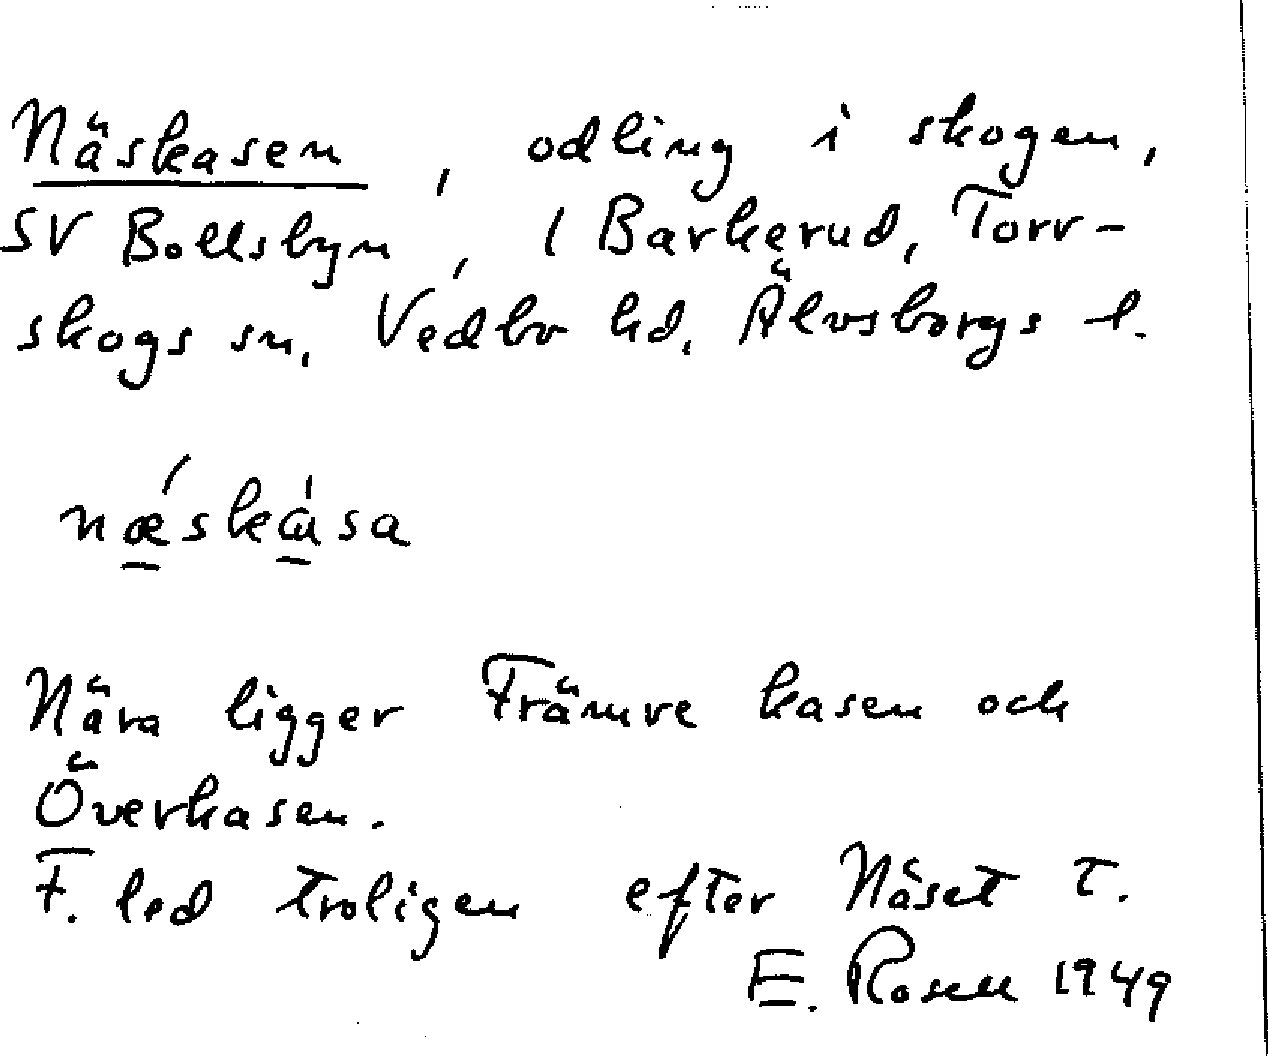 Näskasen, odling i skogen,
SV Bollsbyn, 1 Barkerud, Torr-
skogs sn, Vedbo hd, Älvsborgs l.
nǽ̱ska̱̍sa
Nära ligger Främre kasen och
Överkasen.
F. led troligen efter Näset T.
E. Rosell 1949